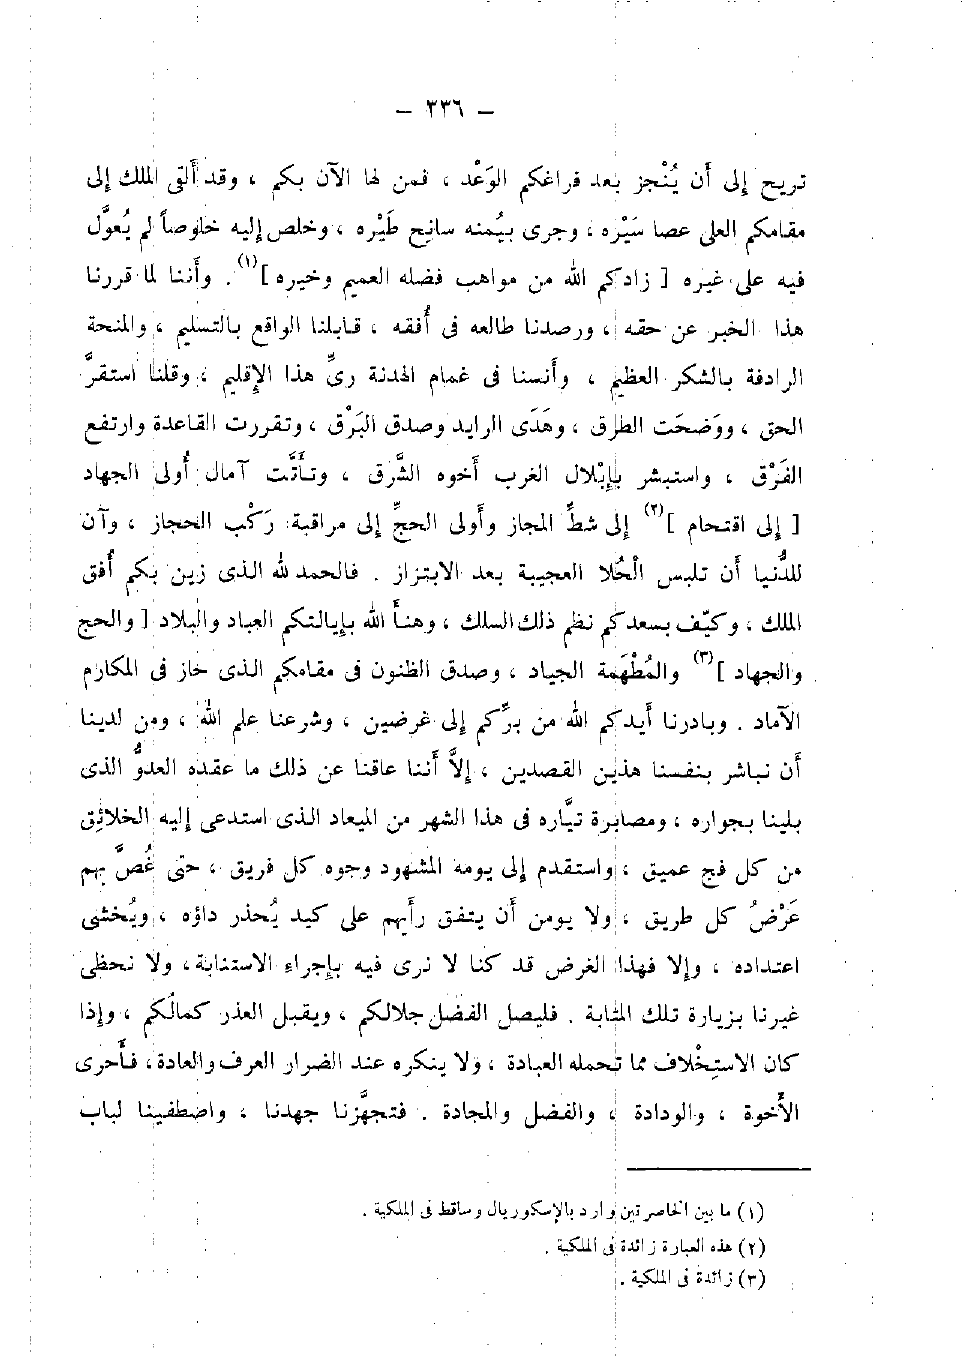 – ٣٣٦ –
تريح إلى أن يُنْجز بعد فراغكم الوَعْد ، فمن لها الآن بكم ، وقد ألقى الملك إلى
مقامكم العلى عصا سَيْره ، وجرى بيُمنه سانح طَيْره ، وخلص إليه خلوصاً لم يُعوَّل
فيه على غيره [ زادكم الله من مواهب فضله العميم وخيره ](١) . وأننا لما قررنا
هذا الخبر عن حقه ، ورصدنا طالعه فى أُفقه ، قابلنا الواقع بالتسليم ، والمنحة
الرادفة بالشكر العظيم ، وأنسنا فى غمام الهدنة رىِّ هذا الإقليم ، وقلنا استقرَّ
الحق ، ووَضحَت الطرق ، وهَدَى الرايد وصدق البَرْق ، وتقررت القاعدة وارتفع
الفَرْق ، واستبشر بإبْلال الغرب أخوه الشَّرق ، وتأتَّت آمال أُولى الجهاد
[ إلى اقتحام ](٢) إلى شطِّ المجاز وأولى الحجِّ إلى مراقبة رَكْب الحجاز ، وآن
للدُّنيا أن تلبس الْحُلا العجيبة بعد الابتزاز . فالحمد لله الذى زين بكم أُفق
الملك ، وكيّف بسعدكم نظم ذلك السلك ، وهنأ الله بإيالتكم العباد والبلاد [ والحج
والجهاد ](٣) والمُطْهَمة الجياد ، وصدق الظنون فى مقامكم الذى حاز فى المكارم
الآماد . وبادرنا أيدكم الله من برِّكم إلى غرضين ، وشرعنا علم الله ، ومن لدينا
أن نباشر بنفسنا هذين القصدين ، إلاَّ أننا عاقنا عن ذلك ما عقده العدوُّ الذى
بلينا بجواره ، ومصابرة تيَّاره فى هذا الشهر من الميعاد الذى استدعى إليه الخلائق
من كل فج عميق ، واستقدم إلى يومه المشهود وجوه كل فريق ، حتى غُصَّ بهم
عَرْضُ كل طريق ، ولا يومن أن يتفق رأيهم على كيد يُحذر داؤه ، ويُخشى
اعتداده ، وإلا فهذا الغرض قد كنا لا نرى فيه بإجراء الاستنابة ، ولا نحظى
غيرنا بزيارة تلك المثابة . فليصل الفضل جلالكم ، ويقبل العذر كمالُكم ، وإذا
كان الاستِخْلاف مما تحمله العبادة ، ولا ينكره عند الضرار العرف والعادة ، فأحرى
الأُخوة ، والودادة ، والفضل والمجادة . فتجهَّزنا جهدنا ، واضطفينا لباب
(١) ما بين الخاصرتين وارد بالإسكوريال وساقط فى الملكية .
(٢) هذه العبارة زائدة فى الملكية .
(٣) زائدة فى الملكية .